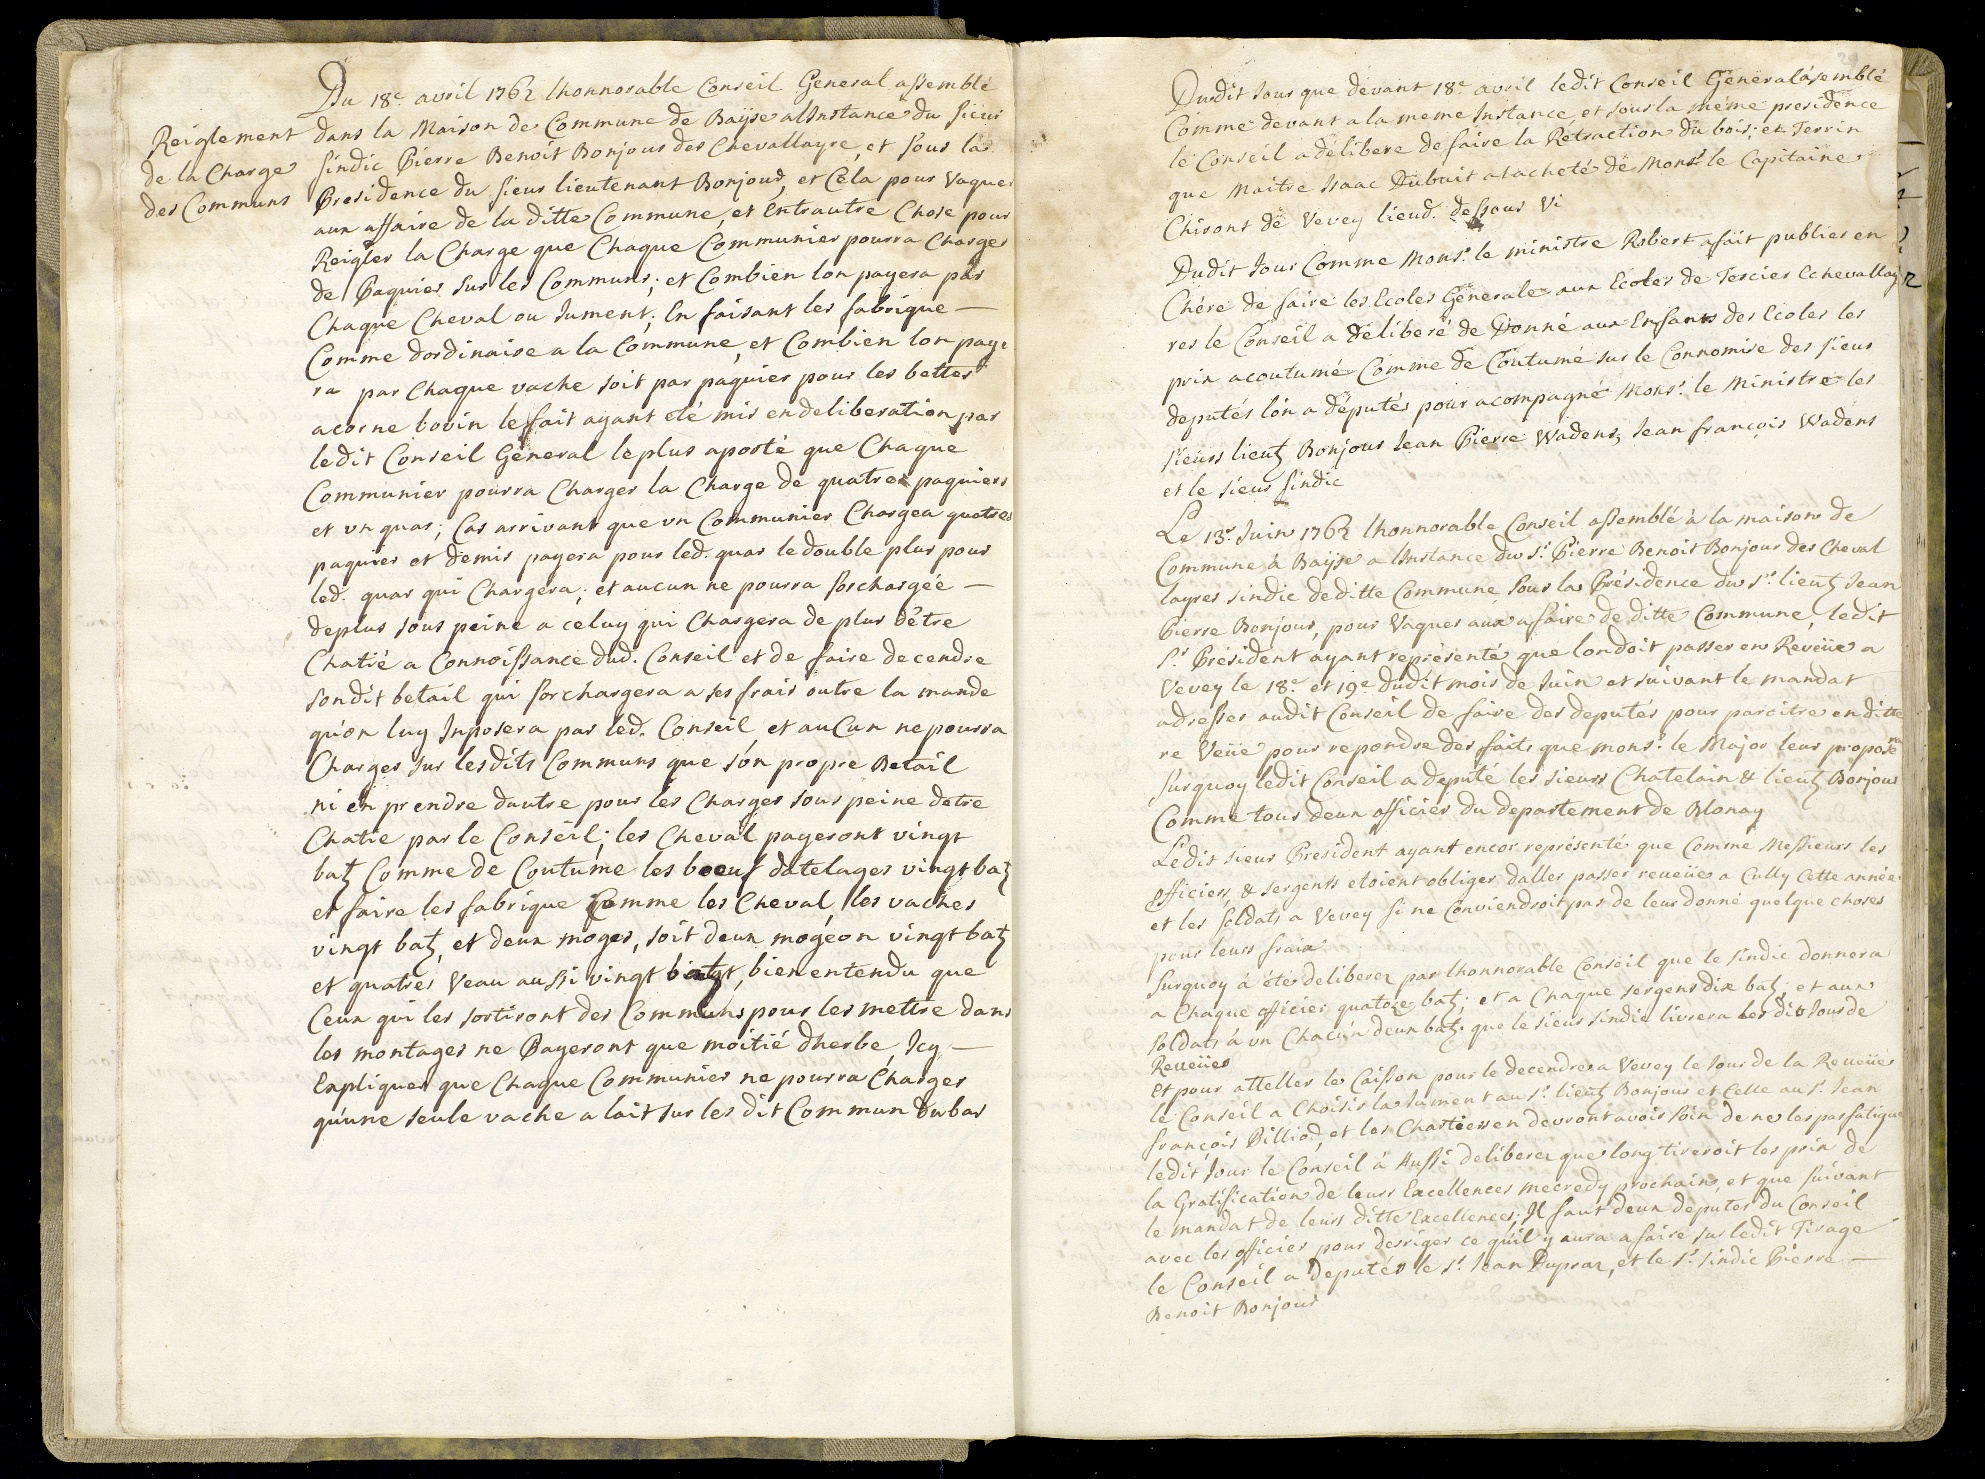 Reiglement
de la Charge
des Communs
Du 18.e avril 1762 lhonnorable Conseil General assemblé
dans la Maison de Commune de Bayse alInstance du sieur
sindic Pierre Benoit Bonjour des Chevallayre, et sous la
Presidence du sieur lieutenant Bonjour, et Cela pour Vaquer
aux affaire de la ditte Commune, et Entrautre Chose pour
Reigler la Charge que Chaque Communier pourra Charger
de Paquier sur les Communs; et Combien lon payera par
Chaque Cheval ou Jument; En faisant les fabrique —
Comme dordinaire a la Commune, et Combien lon paye
ra par Chaque vache soit par paquier pour les bettes
a corne bovin le fait ayant eté mis en deliberation par
ledit Conseil General le plus aporté que Chaque
Communier pourra Charger la Charge de quatres paquiers
et un quar; Cas arrivant que un Communier Chargea quatres
paquier et demis payera pour led. quar le double plus pour
led. quar qui Chargera; et aucun ne pourra forchargée —
deplus sous peine a celuy qui Chargera de plus dêtre
Chatié a Connoissance dud. Conseil et de faire decendre
sondit betail qui forchargera a ses frais outre la mande
qu'on luy Inposera par led. Conseil, et auCun ne pourra
Charger sur lesdits Communs que són propre Betail
ni en prendre dautre pour les Charger sous peine detre
Chatié par le Conseil; les Cheval payeront vingt
batz Comme de Coutume les boeuf datelages vingt batz
et faire les fabrique Comme les Cheval, les vaches
vingt batz, et deux moges, soit deux mogéon vingt batz
et quatres Veau aussi vingt batz, bien entendu que
Ceux qui les sortiront des Communs pour les mettre dans
les montages ne Payeront que moitié dherbe, Icy —
Expliquer que Chaque Communier ne pourra Charger
qu'une seule vache a lait sur les dit Commun Dubas
Dudit Jour que devant 18.e avril ledit Conseil General ásemblé
Comme devant a la meme Instance, et sous la même presidence
le Conseil a délibere de faire la Retraction du bois; et Terrin
que Maitre Isaac Dubuit a lacheté de Mons.r le Capitaine
Chiront de Vevey lieud. dessous Vi
Dudit Jour Comme Mons.r le ministre Robert a fait publier en
Chére de faire les Ecoles Generale aux Ecoles de Tercier Echevallay
res le Conseil a déliberé de Donné aux Enfants des Ecoles les
prix acoutumé Comme de Coutumé sur le Connomise des sieur
deputés lon a députés pour acompagné Mons.r le Ministre les
sieurs lieutz Bonjour Jean Pierre Wadens, Jean françois Wadens
et le sieur sindic
Le 13.e Juin 1762 lhonnorable Conseil assemblé à la maison de
Commune à Bayse a lInstance du S.r Pierre Benoit Bonjour des Cheval
layres sindic de ditte Commune, Sous la Présidence du S.r lieutz Jean
Pierre Bonjour, pour Vaquer aux afaire de ditte Commune, ledit
S.r Président ayant representé que londoit passer en Reveüe a
Vevey le 18.e et 19.e dudit mois de Juin et suivant le mandat
adresser audit Conseil de faire des deputés pour paroitre en ditte
re Veüe pour repondre des faits que mons.r le Major leur proposera
surquoy ledit Conseil a deputé les sieurs Chatelain & lieutz Bonjour
Comme tous deux officier du departement de Blonay
Ledit sieur President ayant encor représenté que Comme Messieurs les
officiers, & sergents etoient obliger daller passer reueües a Cully Cette année
et les soldats a Vevey si ne Conviendroit pas de leur donné quelque choses
pour leurs fraix
Surquoy á été deliberez par lhonnorable Conseil que le sindic donnera
a Chaque officier quatoze batz; et a Chaque sergens dix batz, et aux
soldats á un Chacún deux batz. que le sieur sindic livrera les dit Jour de
Reueües
Et pour atteller le Caisson pour le decendre a Vevey le Jour de la Reueües
le Conseil a Choisis la Jument au S.r lieutz Bonjour et Celle au S.r Jean
françois Pilliod, et les Chartier en devront avoir soin de ne les pas fatigue
ledit Jour le Conseil á Aussi deliberez que long tireroit les prix de
la Gratification de leurs Excellences mecredy prochain, et que suivant
le mandat de leurs ditte Excellences, Il faut deux deputes du Conseil
avec les officier pour derriger ce qu'il y aura a faire sur ledit Tirage
le Conseil a députés le S.r Jean Dupraz, et le S.r sindic Pierre —
Benoit Bonjour